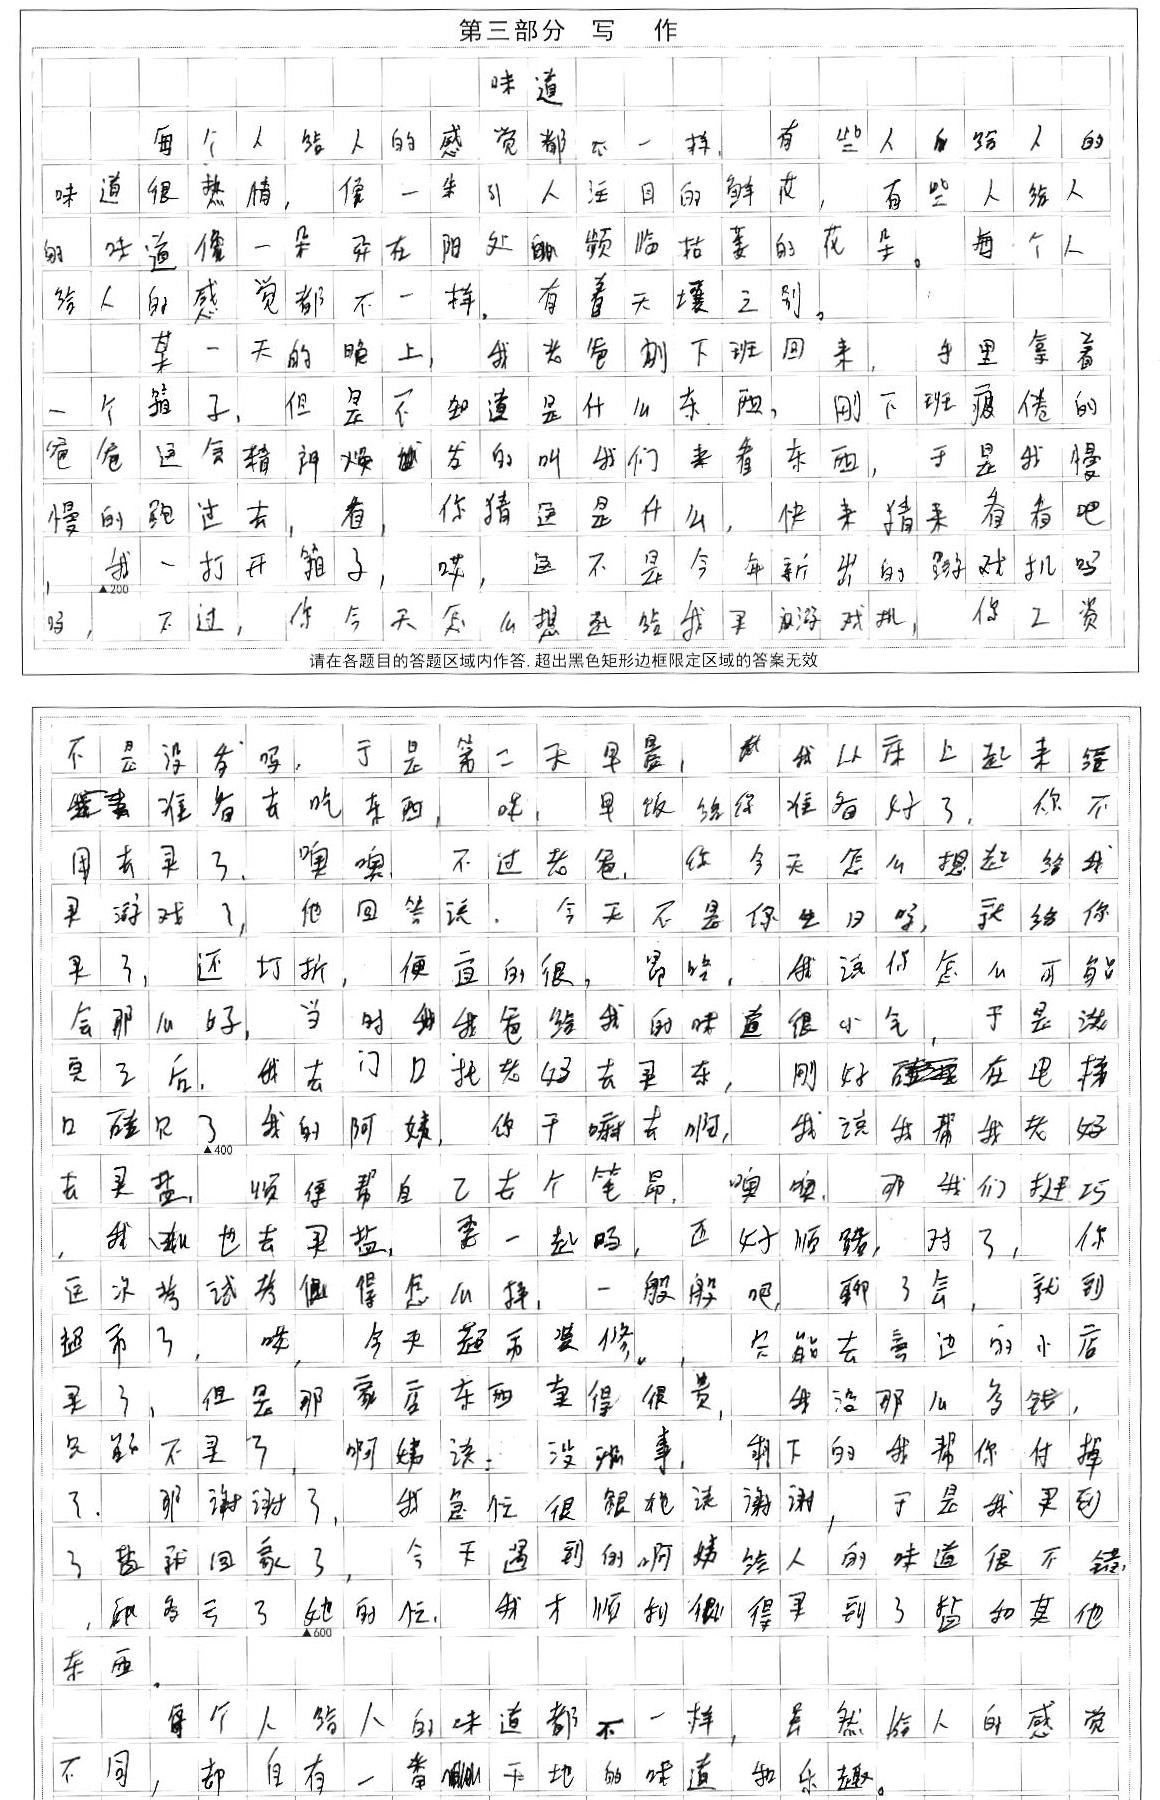 第三部分 写 作
味道
每个人给人的感觉都不一样，有些人给人的
味道很热情，像一朵引人注目的鲜花，有些人给人
的味道像一朵弃在阴处频临枯萎的花朵。每个人
给人的感觉都不一样。有着天壤之别。
某一天的晚上，我老爸刚下班回来，手里拿着
一个箱子，但是不知道是什么东西，刚下班疲倦的
爸爸这会精神焕发的叫我们来看东西，于是我慢
慢的跑过去，看，你猜这是什么，快来猜来看看吧
，我一打开箱子，哎，这不是今年新出的游戏机吗
▲200
吗，不过，你今天怎么想起给我买游戏机，你工资
请在各题目的答题区域内作答,超出黑色矩形边框限定区域的答案无效
不是没发吗，于是第二天早晨，我从床上起来
准备去吃东西，咦，早饭给你准备好了，你不
用去买了，噢噢，不过老爸，你今天怎么想起给我
买游戏了，他回答说．今天不是你生日吗，就给你
买了，还打折，便宜的很，我说你怎么可能
会那么好，当时我爸给我的味道很小气，于是洗
完了后，我去门口老妈去买东，刚好在电梯
口碰见了我的阿姨，你干嘛去啊，我说我帮我老妈
▲400
去买盐，顺便帮自己去个笔昂，噢噢，那我们挺巧
，我也去买盐，要一起吗，还好顺路，对了，你
这次考试考得怎么样，一般般吧，聊了会，就到
超市了，哎，今天超市装修。，只能去旁边的小店
买了，但是那家店东西卖得很贵，我没那么多钱，
只能不买了，啊姨说：没事，剩下的我帮你付掉
了．那谢谢了，我急忙很说谢谢，于是我买到
了盐就回家了，今天遇到的啊姨给人的味道很不错，
，多亏了她的忙．我才顺利得买到了盐和其他
▲600
东西．
每个人给人的味道都不一样，虽然给人的感觉
不同，却自有一番天地的味道和乐趣。